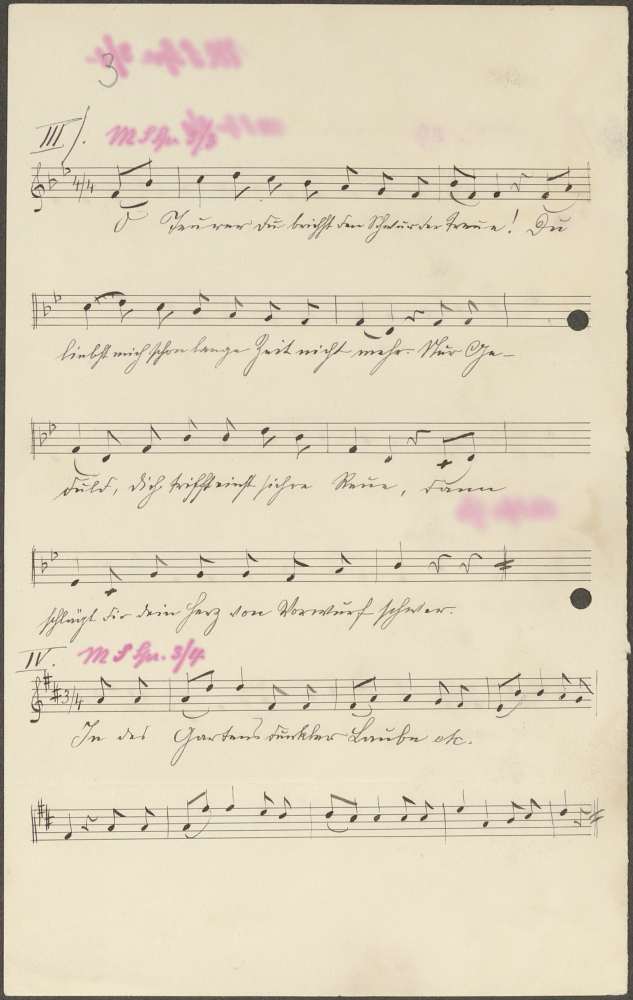 3
III).
4/4
O Teurer du brichst den Schwur der Treue! Du
liebst mich schon lange Zeit nicht mehr. Nur Ge-
duld, dich trifft einst sichre Reue, dann
schlägt dir dein Herz von Vorwurf schwer.
IV. 3/4
3/4
In des Gartens dunkler Laube etc.